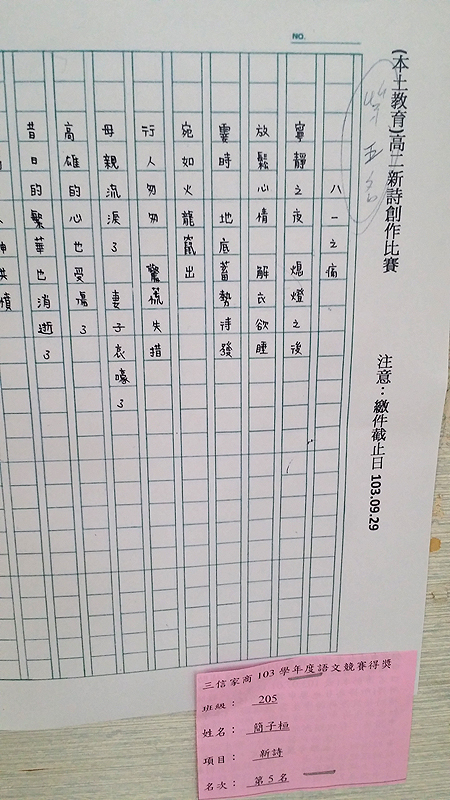 NO.
(本土教育)高二新詩創作比賽
注意：繳件截止日 103.09.29
第五名
八一之痛
寧靜之夜 熄燈之後
放鬆心情 解衣欲睡
霎時 地底蓄勢待發
宛如火龍竄出
行人匆匆 驚慌失措
母親流淚了 妻子哀嚎了
高雄的心也受傷了
昔日的繁華也消逝了
三信家商103學年度語文競賽得獎
班級： 205
姓名： 簡子桓
項目： 新詩
名次： 第5名